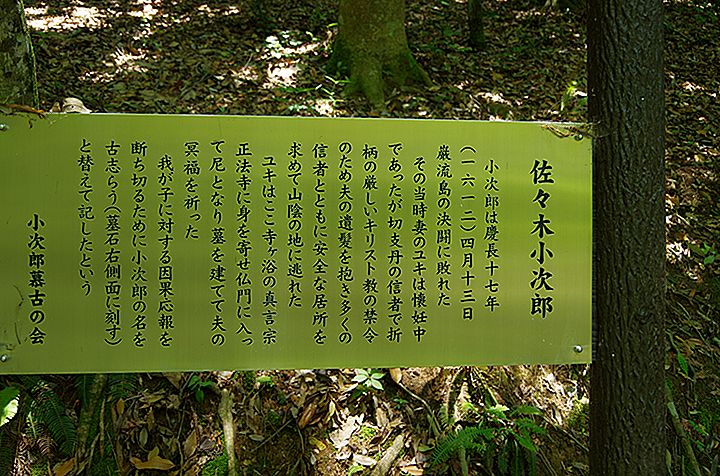 佐々木小次郎
小次郎は慶長十七年
(一六一二)四月十三日
巌流島の決闘に敗れた
その当時妻のユキは懐妊中
であったが切支丹の信者で折
柄の厳しいキリスト教の禁令
のため夫の遺髪を抱き多くの
信者とともに安全な居所を
求めて山陰の地に逃れた
ユキはここ寺ヶ浴の真言宗
正法寺に身を寄せ仏門に入っ
て尼となり墓を建てて夫の
冥福を祈った
我が子に対する因果応報を
断ち切るために小次郎の名を
古志らう(墓石右側面に刻す)
と替えて記したという
小次郎慕古の会